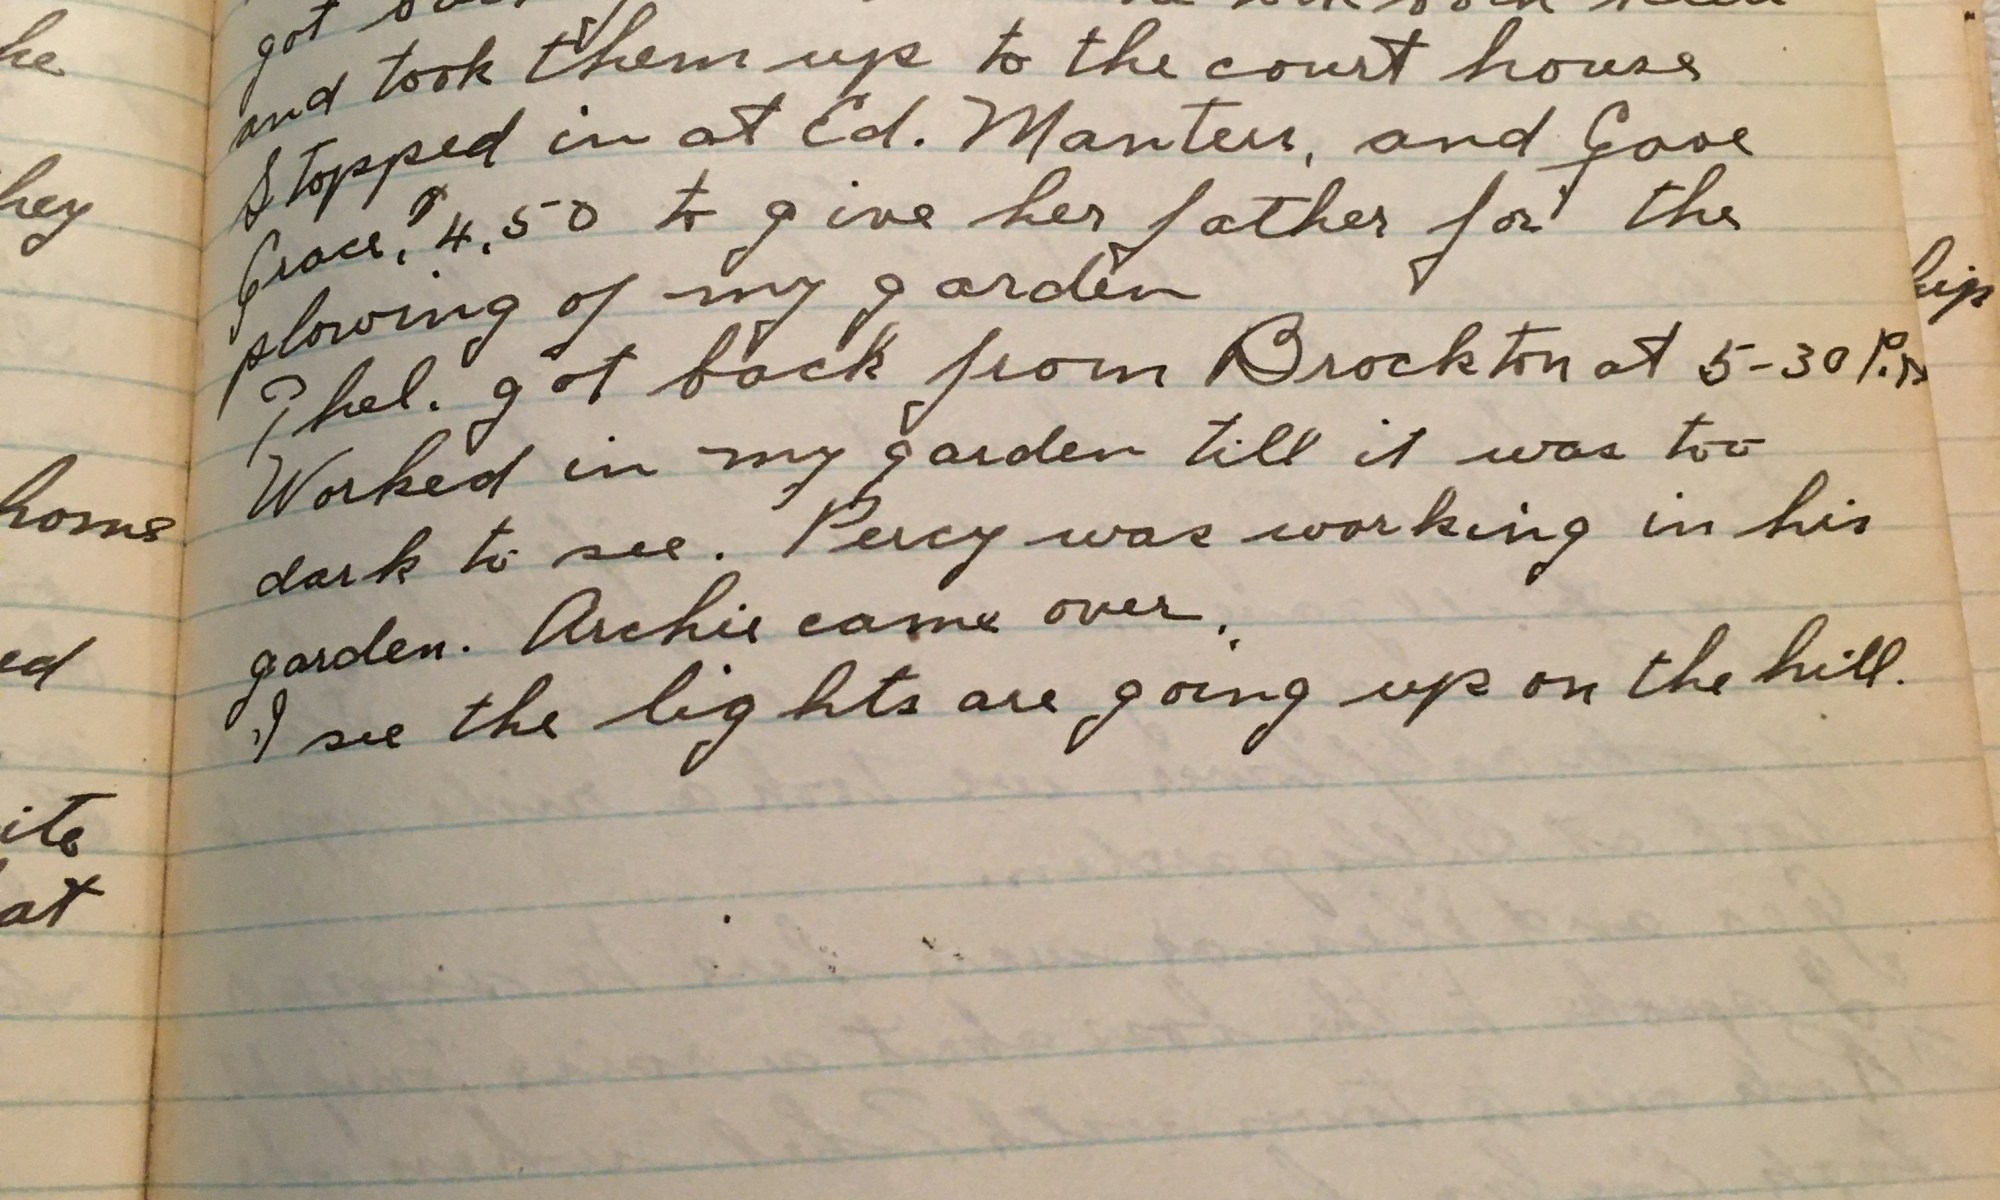 he
hey
home
ed
ite
at
got
and took them up to the court house
Stopped in at Ed. Manters, and Gave
Grace, $4.50 to give her father for the
plowing of my garden
Thel. got back from Brockton at 5-30 P.M
Worked in my garden till it was too
dark to see. Percy was working in his
garden. Archie came over.
I see the lights are going up on the hill.
hip